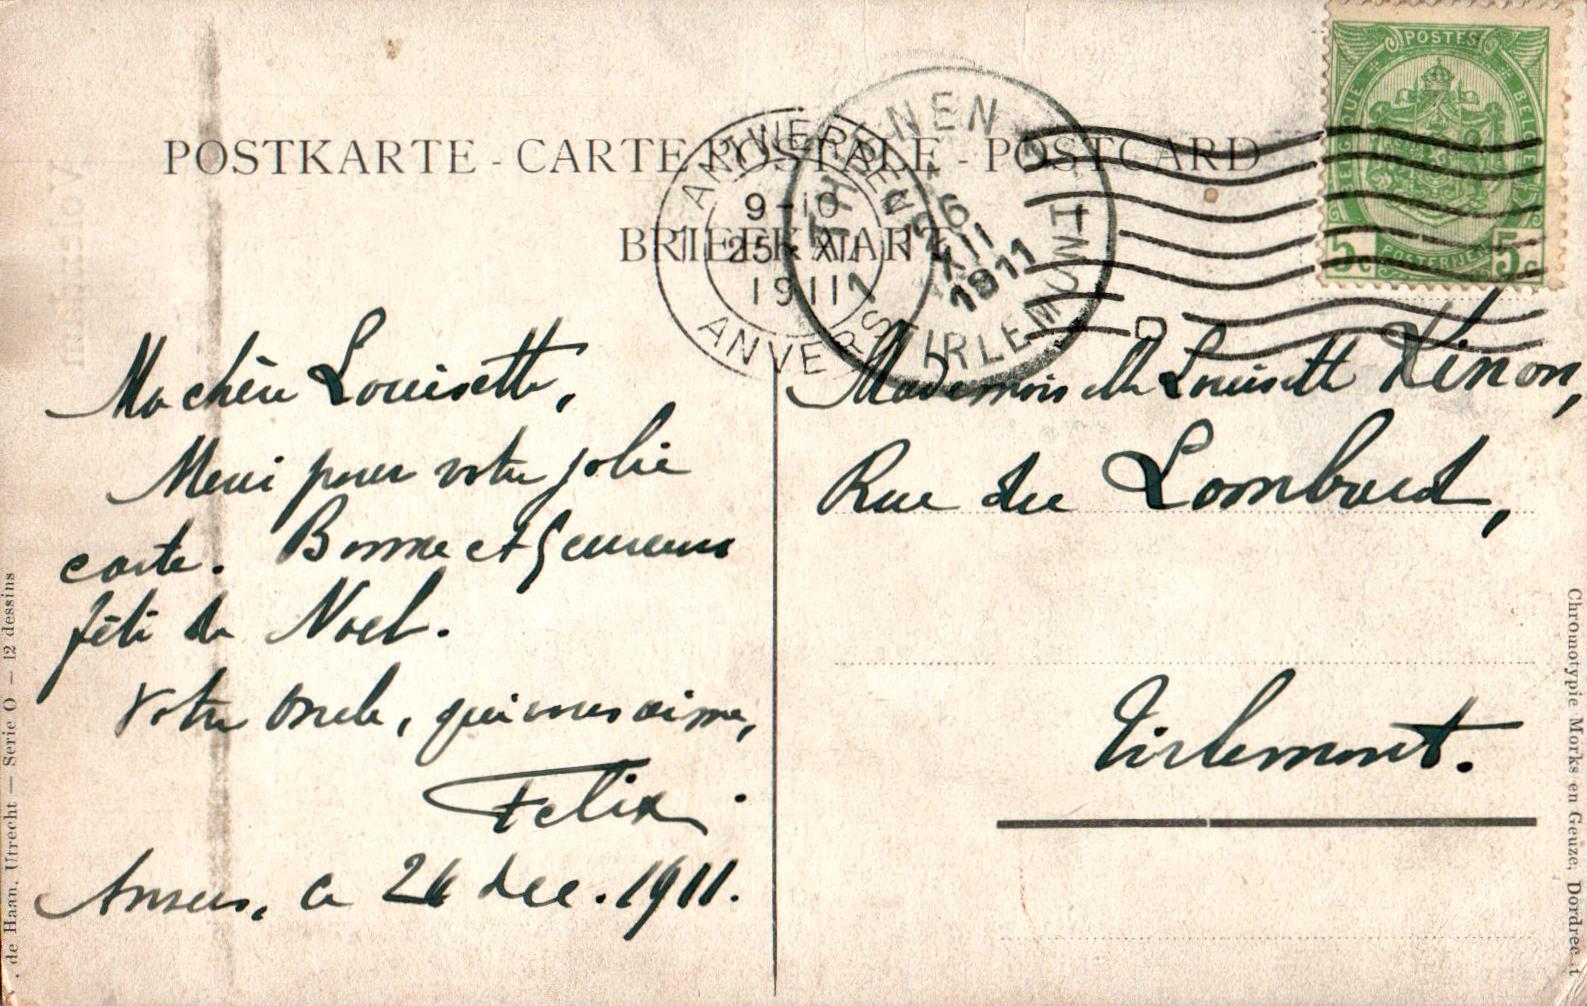 POSTKARTE - CARTE POSTALE - POSTCARD
BRIEFKAART
ANTWERPEN
9-10
25 XII
1911
ANVERS
THIENEN
26
XII
1911
TIRLEMONT
POSTES
BELGIQUE
BELGIE
5c
POSTERIJEN
5c
Ma chère Louisette,
Merci pour votre jolie
carte. Bonne et heureuse
fête de Noel.
Votre oncle, qui vous aime,
Felix.
Anvers, ce 24 dec. 1911.
Mademoiselle Louisette
Rue du Lombard,
Tirlemont.
de Haan, Utrecht — Serie O — 12 dessins
Chromotypie Morks en Geuze, Dordrec t